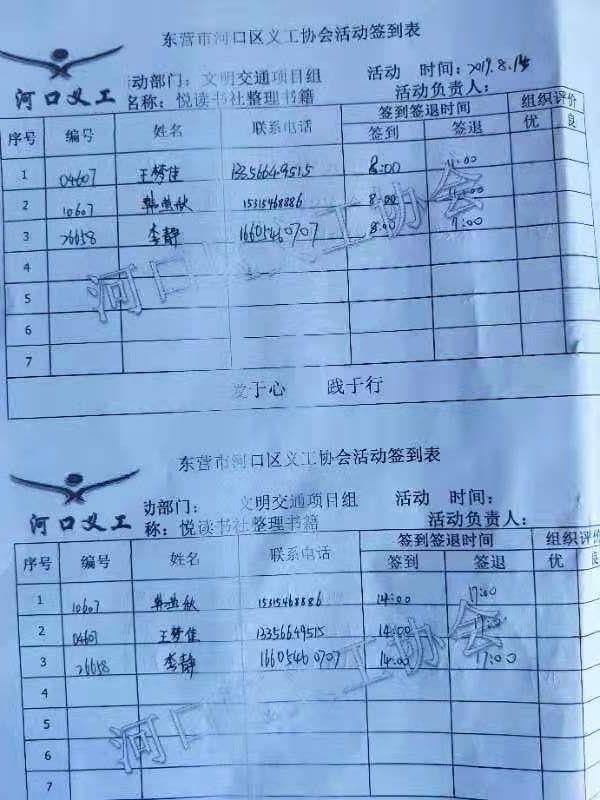 东营市河口区义工协会活动签到表
河口义工
动部门: 文明交通项目组 活动 时间: 2019.8.15
名称: 悦读书社整理书籍 活动负责人:
序号 编号 姓名 联系电话 签到签退时间 组织评价
签到 签退 优 良
1 04607 王梦佳 13356649515 8:00 11:00
2 10607 15315468886 8:00 11:00
3 26658 李静 16605460707 8:00 11:00
4
5
6
7
河口义工协会
爱于心 践于行
东营市河口区义工协会活动签到表
河口义工
动部门: 文明交通项目组 活动 时间:
称: 悦读书社整理书籍 活动负责人:
序号 编号 姓名 联系电话 签到签退时间 组织评价
签到 签退 优 良
1 10607 15315468886 14:00 17:00
2 04607 王梦佳 13356649515 14:00 17:00
3 26658 李静 16605460707 14:00 17:00
4
5
6
7
河口义工协会